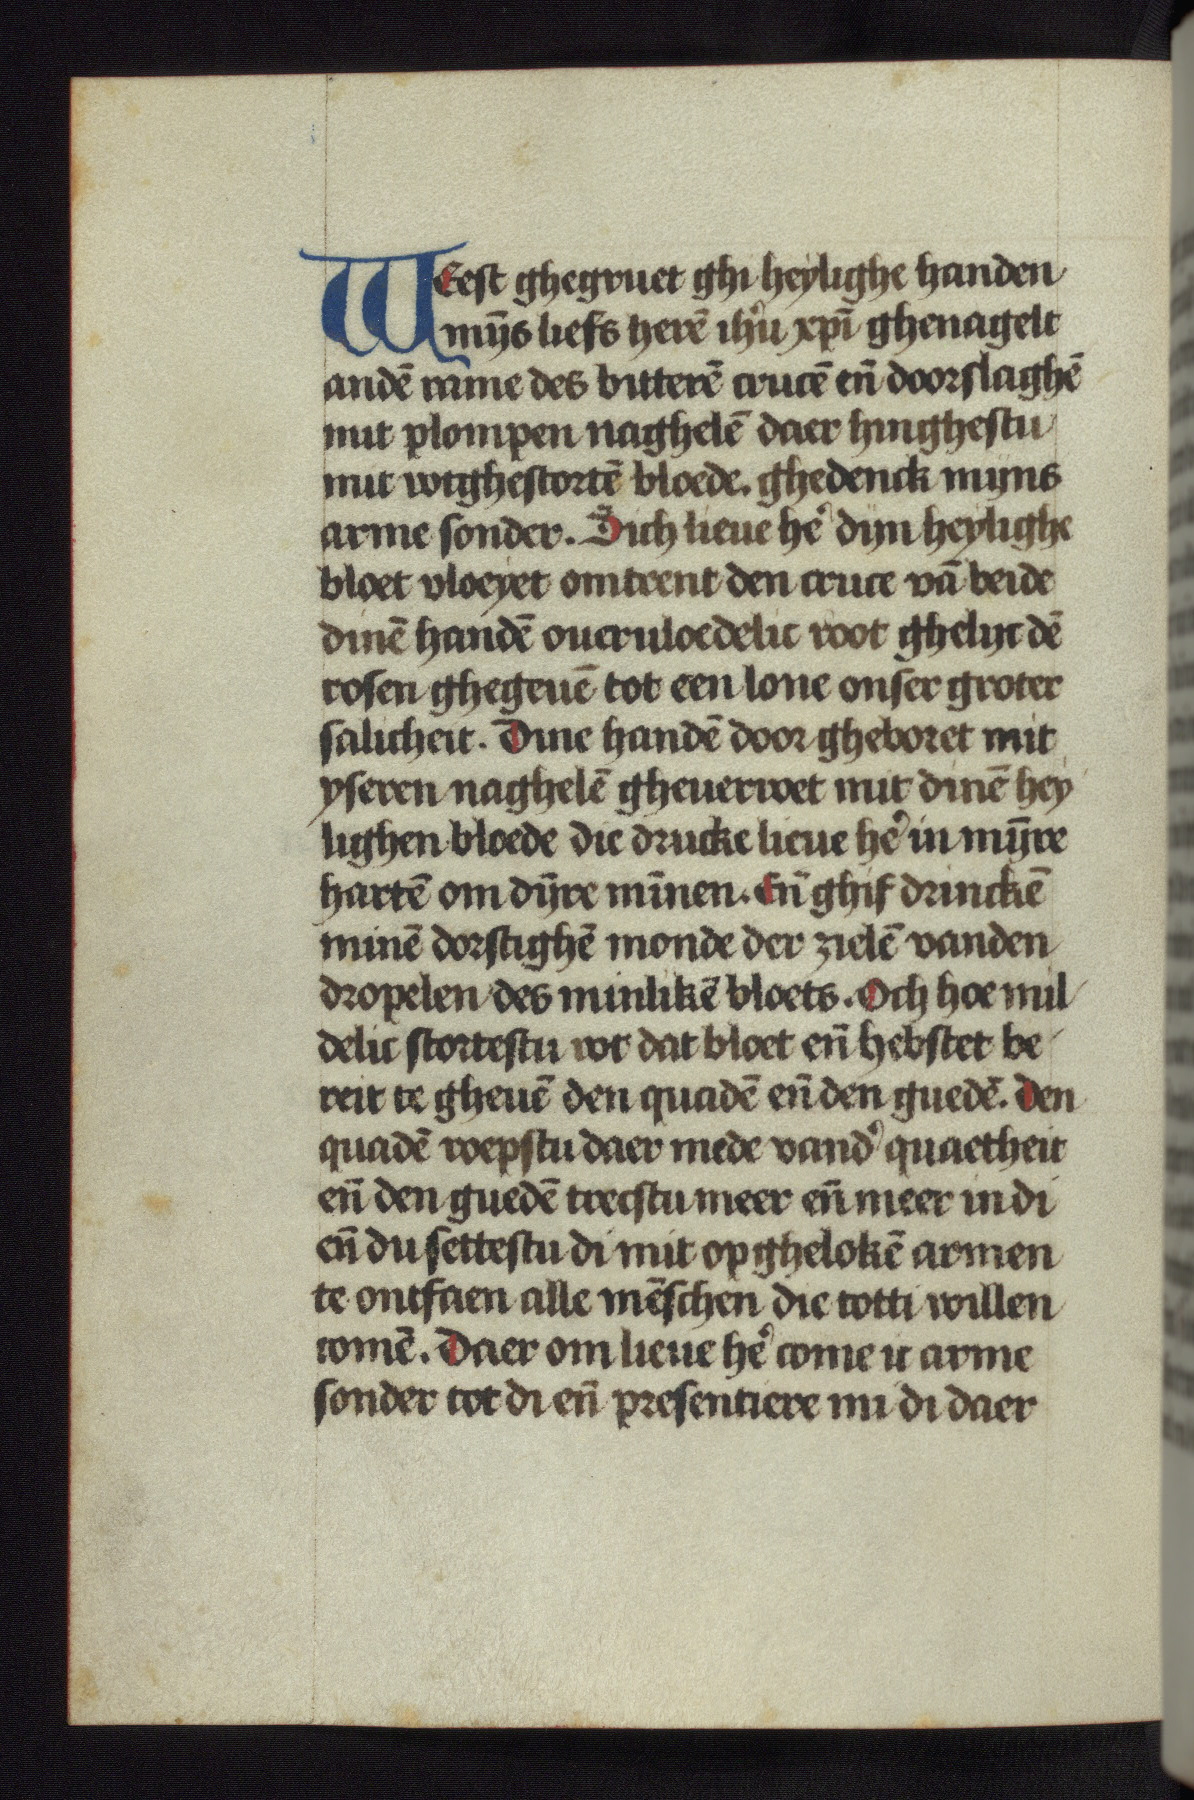 WEest ghegruet ghi heylighe handen
mȳs liefs herē ihū xpī ghenagelt
andē rame des bitterē crucē en̄ doorslaghē
mit plompen naghelē daer hinghestu
mit wtghestortē bloede. ghedenck mijns
arme sonder. Sich lieue he' dijn heylighe
bloet vloeyet omtrent den cruce vā beide
dinē handē oueruloedelic root ghelijc dē
rosen ghegeuē tot een lone onser groter
salicheit. Dine handē door gheboret mit
yseren naghelē gheuerwet mit dinē hey
lighen bloede die drucke lieue he' in mȳre
hartē om dȳre mīnen. En̄ ghif drinckē
minē dorstighē monde der zielē vanden
dropelen des minlikē bloets. Och hoe mil
delic stortestu wt dat bloet en̄ hebstet be
reit te gheuē den quadē en̄ den guedē. Den
quadē roepstu daer mede vand' quaetheit
en̄ den guedē trecstu meer en̄ meer in di
en̄ du settestu di mit op ghelokē armen
te ontfaen alle mēschen die totti willen
comē. Daer om lieue he' come ic arme
sonder tot di en̄ presentiere mi di daer